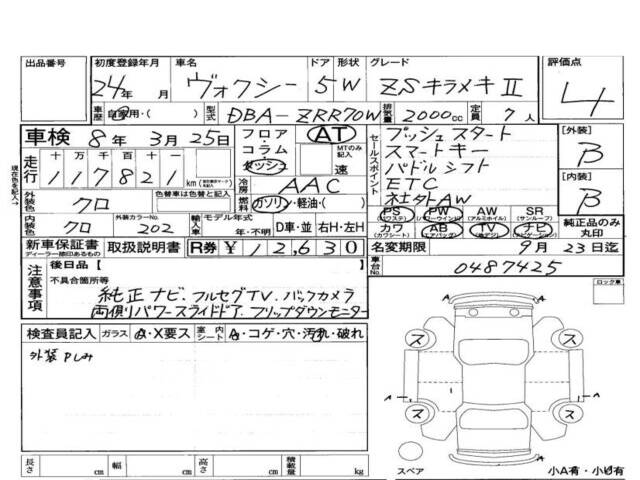 出品番号 初度登録年月 車名 ドア 形状 グレード 評価点
24年 月 ヴォクシー 5 W ZSキラメキⅡ 4
車歴 自家用・( ) 型式 DBA-ZRR70W 排気量 2000cc 定員 7人
車検 8年 3月 25日 フロア コラム ダッシュ AT MTのみ記入 速
現在色を記入→
走行 十万千百十一 117821 km
冷房 AAC
外装色 クロ 色替車は色替と記入 燃料 ガソリン・軽油・( )
内装色 クロ 外装カラーNo. 202 輸入車 モデル年式 年・不明 D車・並 右H・左H
セールスポイント
プッシュスタート
スマートキー
パドルシフト
ETC
社外AW
[外装] B
[内装] B
PS PW AW SR 純正品のみ丸印
(パワステ) (パワーウインド) (アルミホイル) (サンルーフ)
カワ AB TV ナビ
(カワシート) (エアバッグ) (地デジ) (ナビゲーション)
新車保証書 取扱説明書 R券 ¥12,630 名変期限 9月 23日迄
ディーラー捺印あるもの
注意事項 後日品[ ] 車台No. 0487425
不具合箇所等
純正ナビ.フルセグTV.バックカメラ
両側パワースライドドア.フリップダウンモニター
ロック車
検査員記入 ガラス A・X要ス 室内シート A・コゲ・穴・汚れ・破れ
外装 Pしみ
ス ス
A 1 A
ス ス
長さ cm 幅 cm 高さ cm 積載量 kg
スペア 小A有・小U有